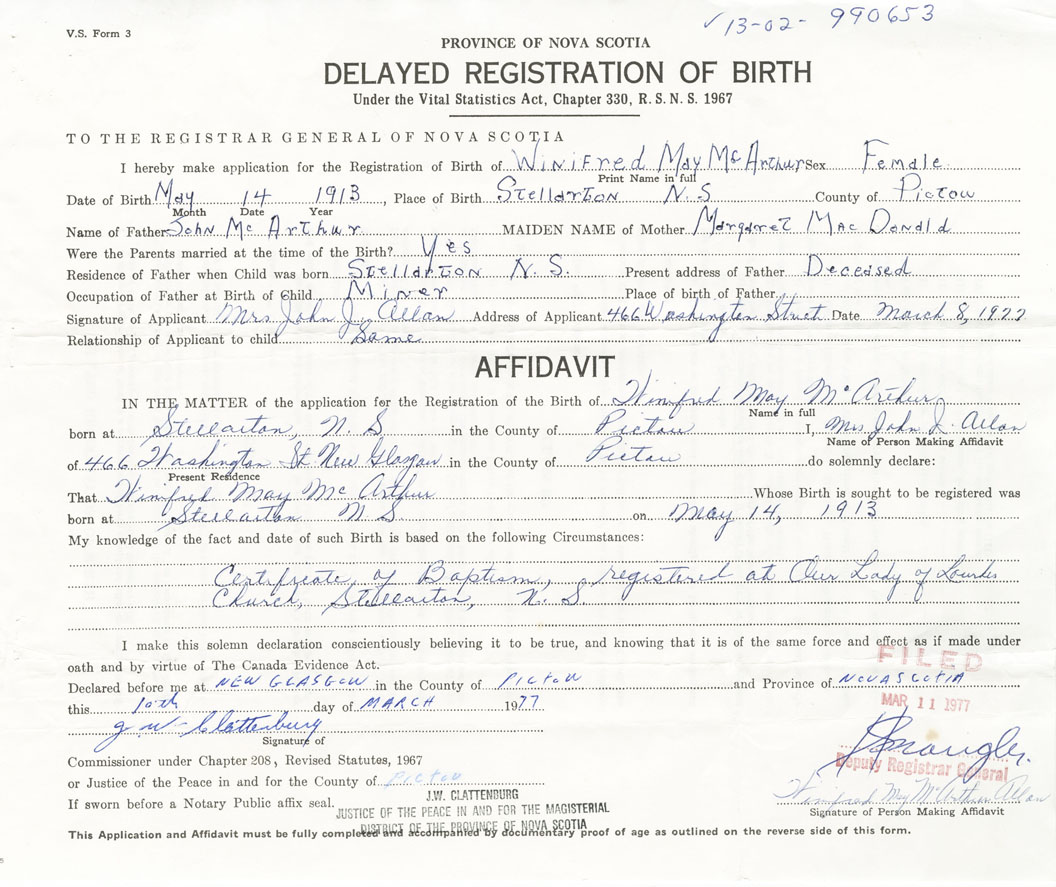 ✓ 13-02- 990653
V.S. Form 3
PROVINCE OF NOVA SCOTIA
DELAYED REGISTRATION OF BIRTH
Under the Vital Statistics Act, Chapter 330, R.S.N.S. 1967
TO THE REGISTRAR GENERAL OF NOVA SCOTIA
I hereby make application for the Registration of Birth of Winifred May McArthur Sex Female
Print Name in full
Date of Birth May 14 1913, Place of Birth Stellarton N.S County of Pictou
Month Date Year
Name of Father John McArthur MAIDEN NAME of Mother Margaret MacDonald
Were the Parents married at the time of the Birth? Yes
Residence of Father when Child was born Stellarton N.S. Present address of Father Deceased
Occupation of Father at Birth of Child Miner Place of birth of Father
Signature of Applicant Mrs John J. Allan Address of Applicant 466 Washington Street Date March 8, 1977
Relationship of Applicant to child Same
AFFIDAVIT
IN THE MATTER of the application for the Registration of the Birth of Winifred May McArthur
Name in full
born at Stellarton, N.S in the County of Pictou I, Mrs John J. Allan
Name of Person Making Affidavit
of 466 Washington St New Glasgow in the County of Pictou do solemnly declare:
Present Residence
That Winifred May McArthur Whose Birth is sought to be registered was
born at Stellarton N S on May 14, 1913
My knowledge of the fact and date of such Birth is based on the following Circumstances:
Certificate of Baptism, registered at Our Lady of Lourdes
Church, Stellarton, N.S.
I make this solemn declaration conscientiously believing it to be true, and knowing that it is of the same force and effect as if made under
oath and by virtue of The Canada Evidence Act.
FILED
Declared before me at NEW GLASGOW in the County of PICTOU and Province of NOVA SCOTIA
this 10th day of MARCH 1977
MAR 11 1977
J W Clattenburg
Signature of
Commissioner under Chapter 208, Revised Statutes, 1967
Deputy Registrar General
or Justice of the Peace in and for the County of Pictou
Winifred May McArthur Allan
If sworn before a Notary Public affix seal.
J.W. CLATTENBURG
JUSTICE OF THE PEACE IN AND FOR THE MAGISTERIAL
DISTRICT OF THE PROVINCE OF NOVA SCOTIA
Signature of Person Making Affidavit
This Application and Affidavit must be fully completed and accompanied by documentary proof of age as outlined on the reverse side of this form.